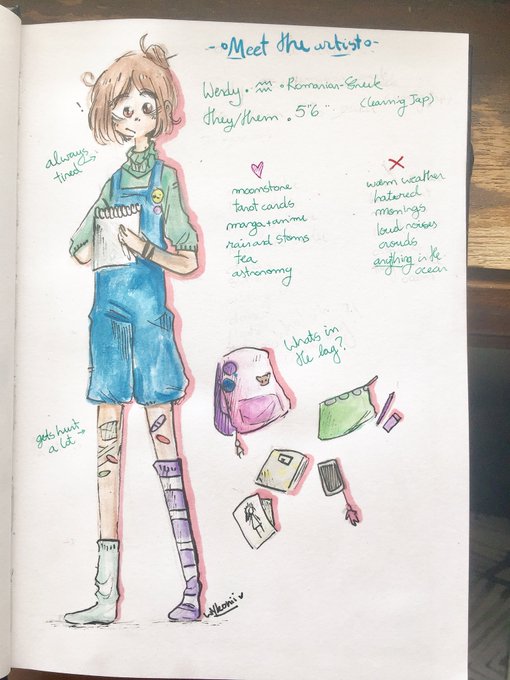 Meet the artist
Wendy • ♒ • Romanian-Greek
(learning Jap)
They/them • 5"6
always
tired
moonstone
tarot cards
manga+anime
rain and storms
tea
astronomy
warm weather
hatered
mornings
loud noises
crouds
anything in the
ocean
Whats in
the bag?
gets hurt
a lot